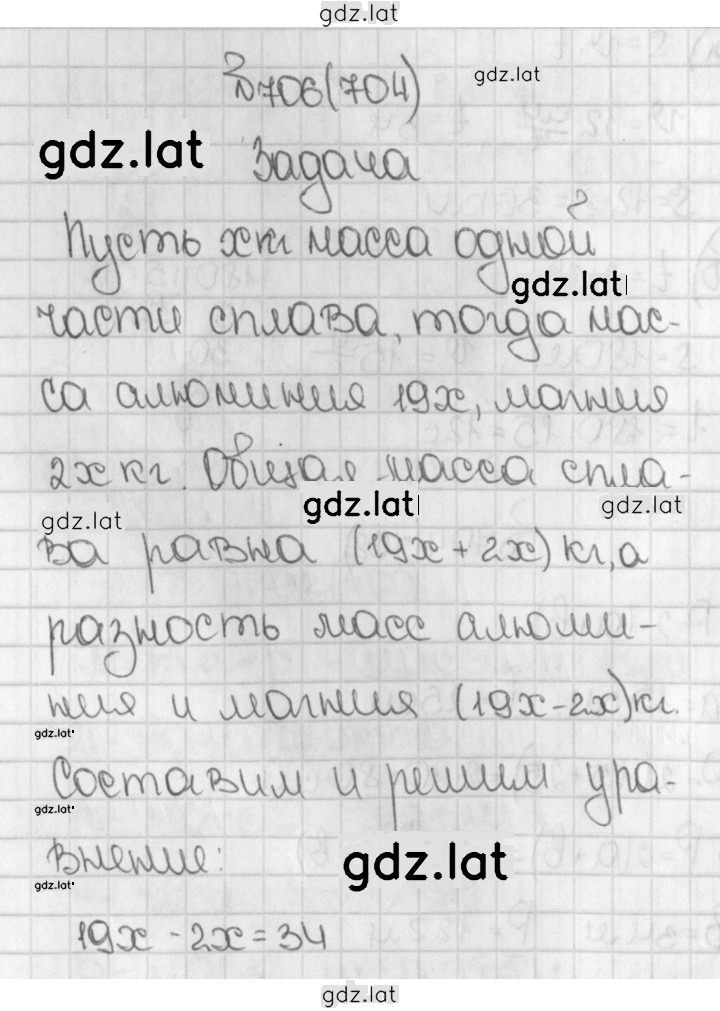 gdz.lat
№706(704)
gdz.lat
gdz.lat
Задача
Пусть x кг масса одной
gdz.lat
части сплава, тогда мас-
са алюминия 19x, магния
2x кг. Общая масса спла-
gdz.lat
gdz.lat
gdz.lat
ва равна (19x + 2x) кг, а
разность масс алюми-
ния и магния (19x - 2x) кг.
gdz.lat
Составим и решим ура-
gdz.lat
внение:
gdz.lat
gdz.lat
19x - 2x = 34
gdz.lat